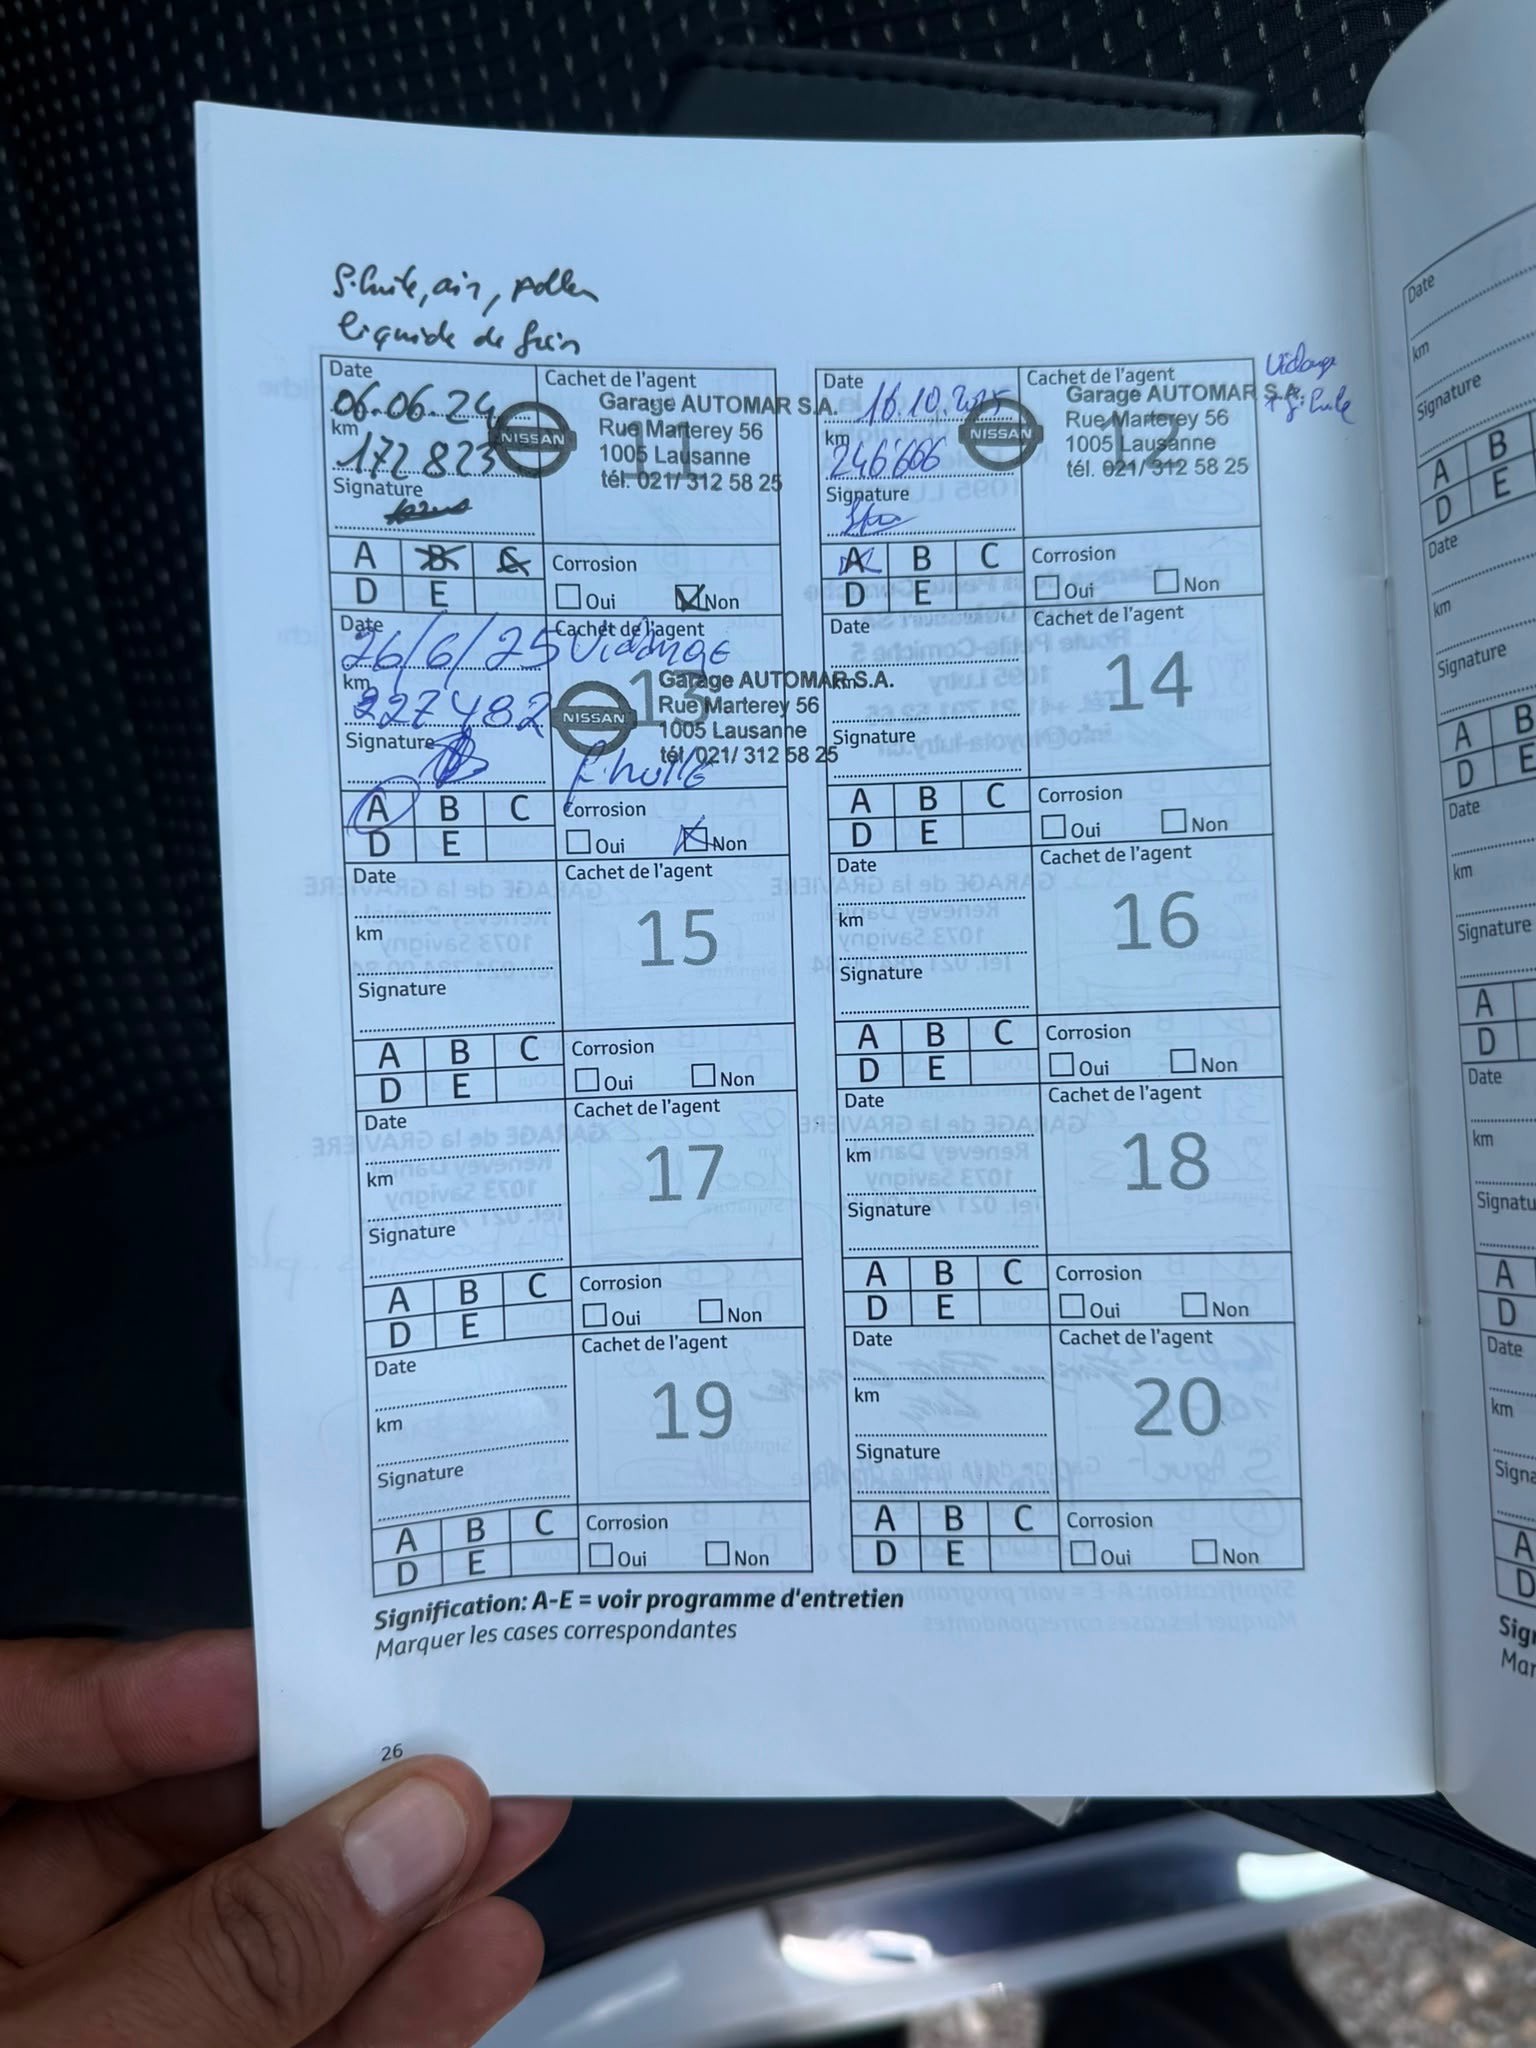 f. huile, air, pollen
liquide de frein
Date
06.06.24
km
172 823
Signature
Cachet de l'agent
11
NISSAN
Garage AUTOMAR S.A.
Rue Marterey 56
1005 Lausanne
tél. 021/ 312 58 25
A B C
D E
Corrosion
Oui Non
Date
16.10.2025
km
246666
Signature
Cachet de l'agent
12
NISSAN
Garage AUTOMAR S.A.
Rue Marterey 56
1005 Lausanne
tél. 021/ 312 58 25
Vidange
+ f. huile
A B C
D E
Corrosion
Oui Non
Date
26/6/25
km
227482
Signature
Cachet de l'agent
Vidange
13
NISSAN
Garage AUTOMAR S.A.
Rue Marterey 56
1005 Lausanne
tél. 021/ 312 58 25
f. huile
A B C
D E
Corrosion
Oui Non
Date
km
Signature
Cachet de l'agent
14
A B C
D E
Corrosion
Oui Non
Date
km
Signature
Cachet de l'agent
15
A B C
D E
Corrosion
Oui Non
Date
km
Signature
Cachet de l'agent
16
A B C
D E
Corrosion
Oui Non
Date
km
Signature
Cachet de l'agent
17
A B C
D E
Corrosion
Oui Non
Date
km
Signature
Cachet de l'agent
18
A B C
D E
Corrosion
Oui Non
Date
km
Signature
Cachet de l'agent
19
A B C
D E
Corrosion
Oui Non
Date
km
Signature
Cachet de l'agent
20
A B C
D E
Corrosion
Oui Non
Signification: A-E = voir programme d'entretien
Marquer les cases correspondantes
26
Date
km
Signature
A B
D E
Date
km
Signature
A B
D E
Date
km
Signature
A
D
Date
km
A
D
Date
km
A
D